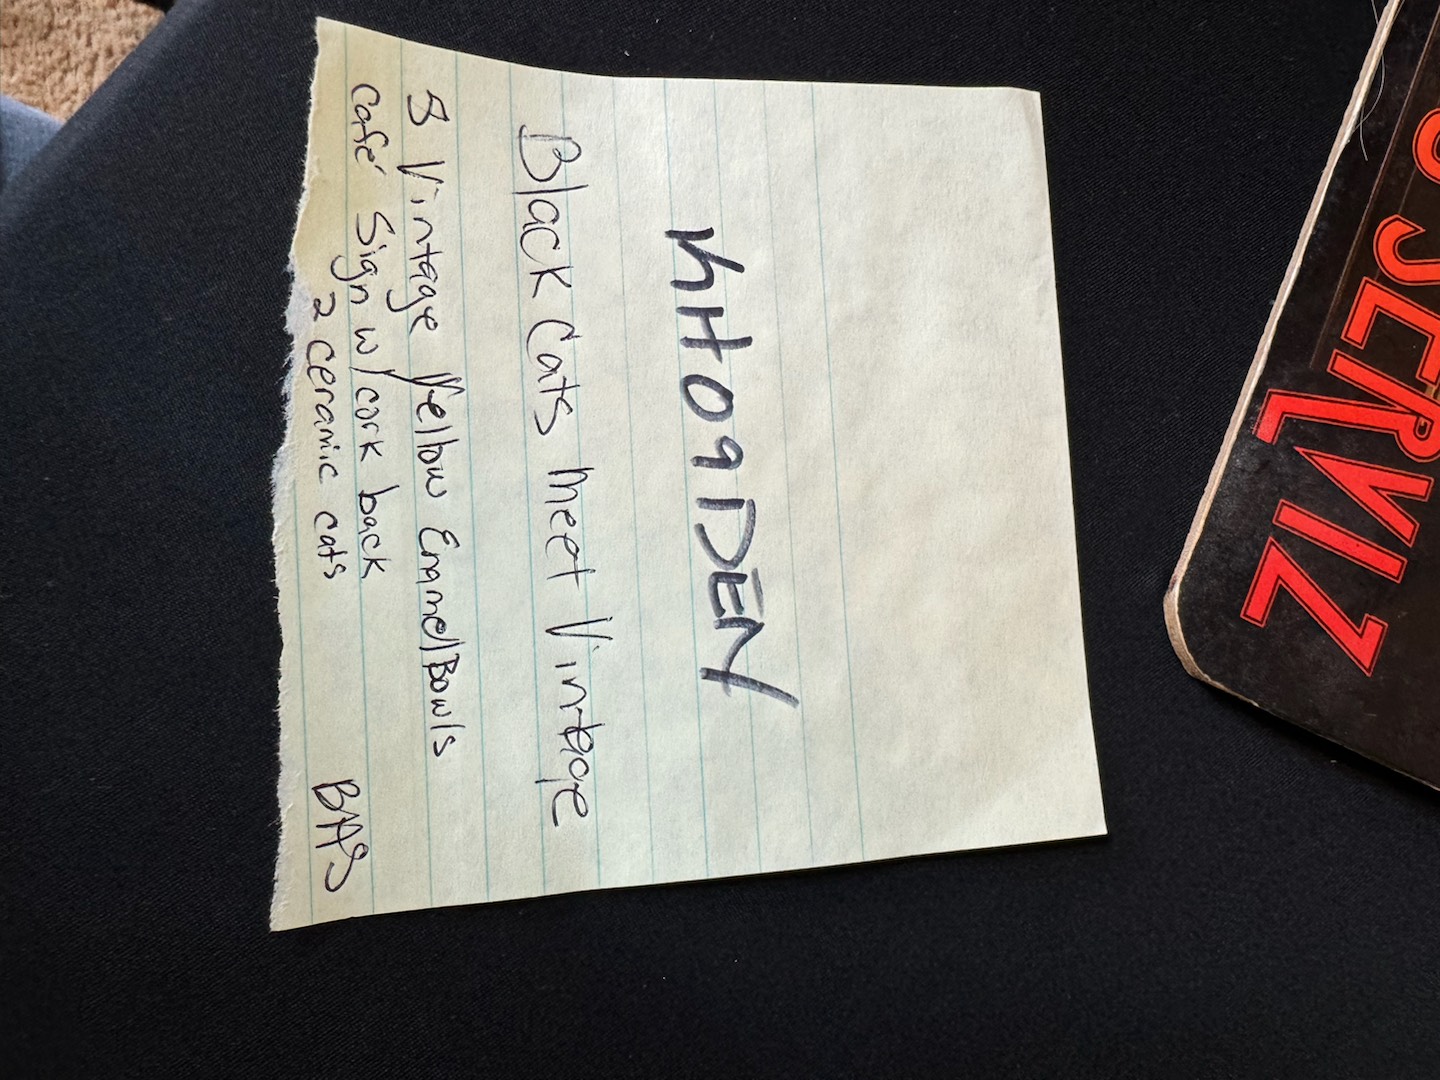 KHO9DEN
Black Cats Meet Vintage
Vintage Yellow Enamel Bowls
Café Sign w/ cork back
2 ceramic cats
SERVIZ